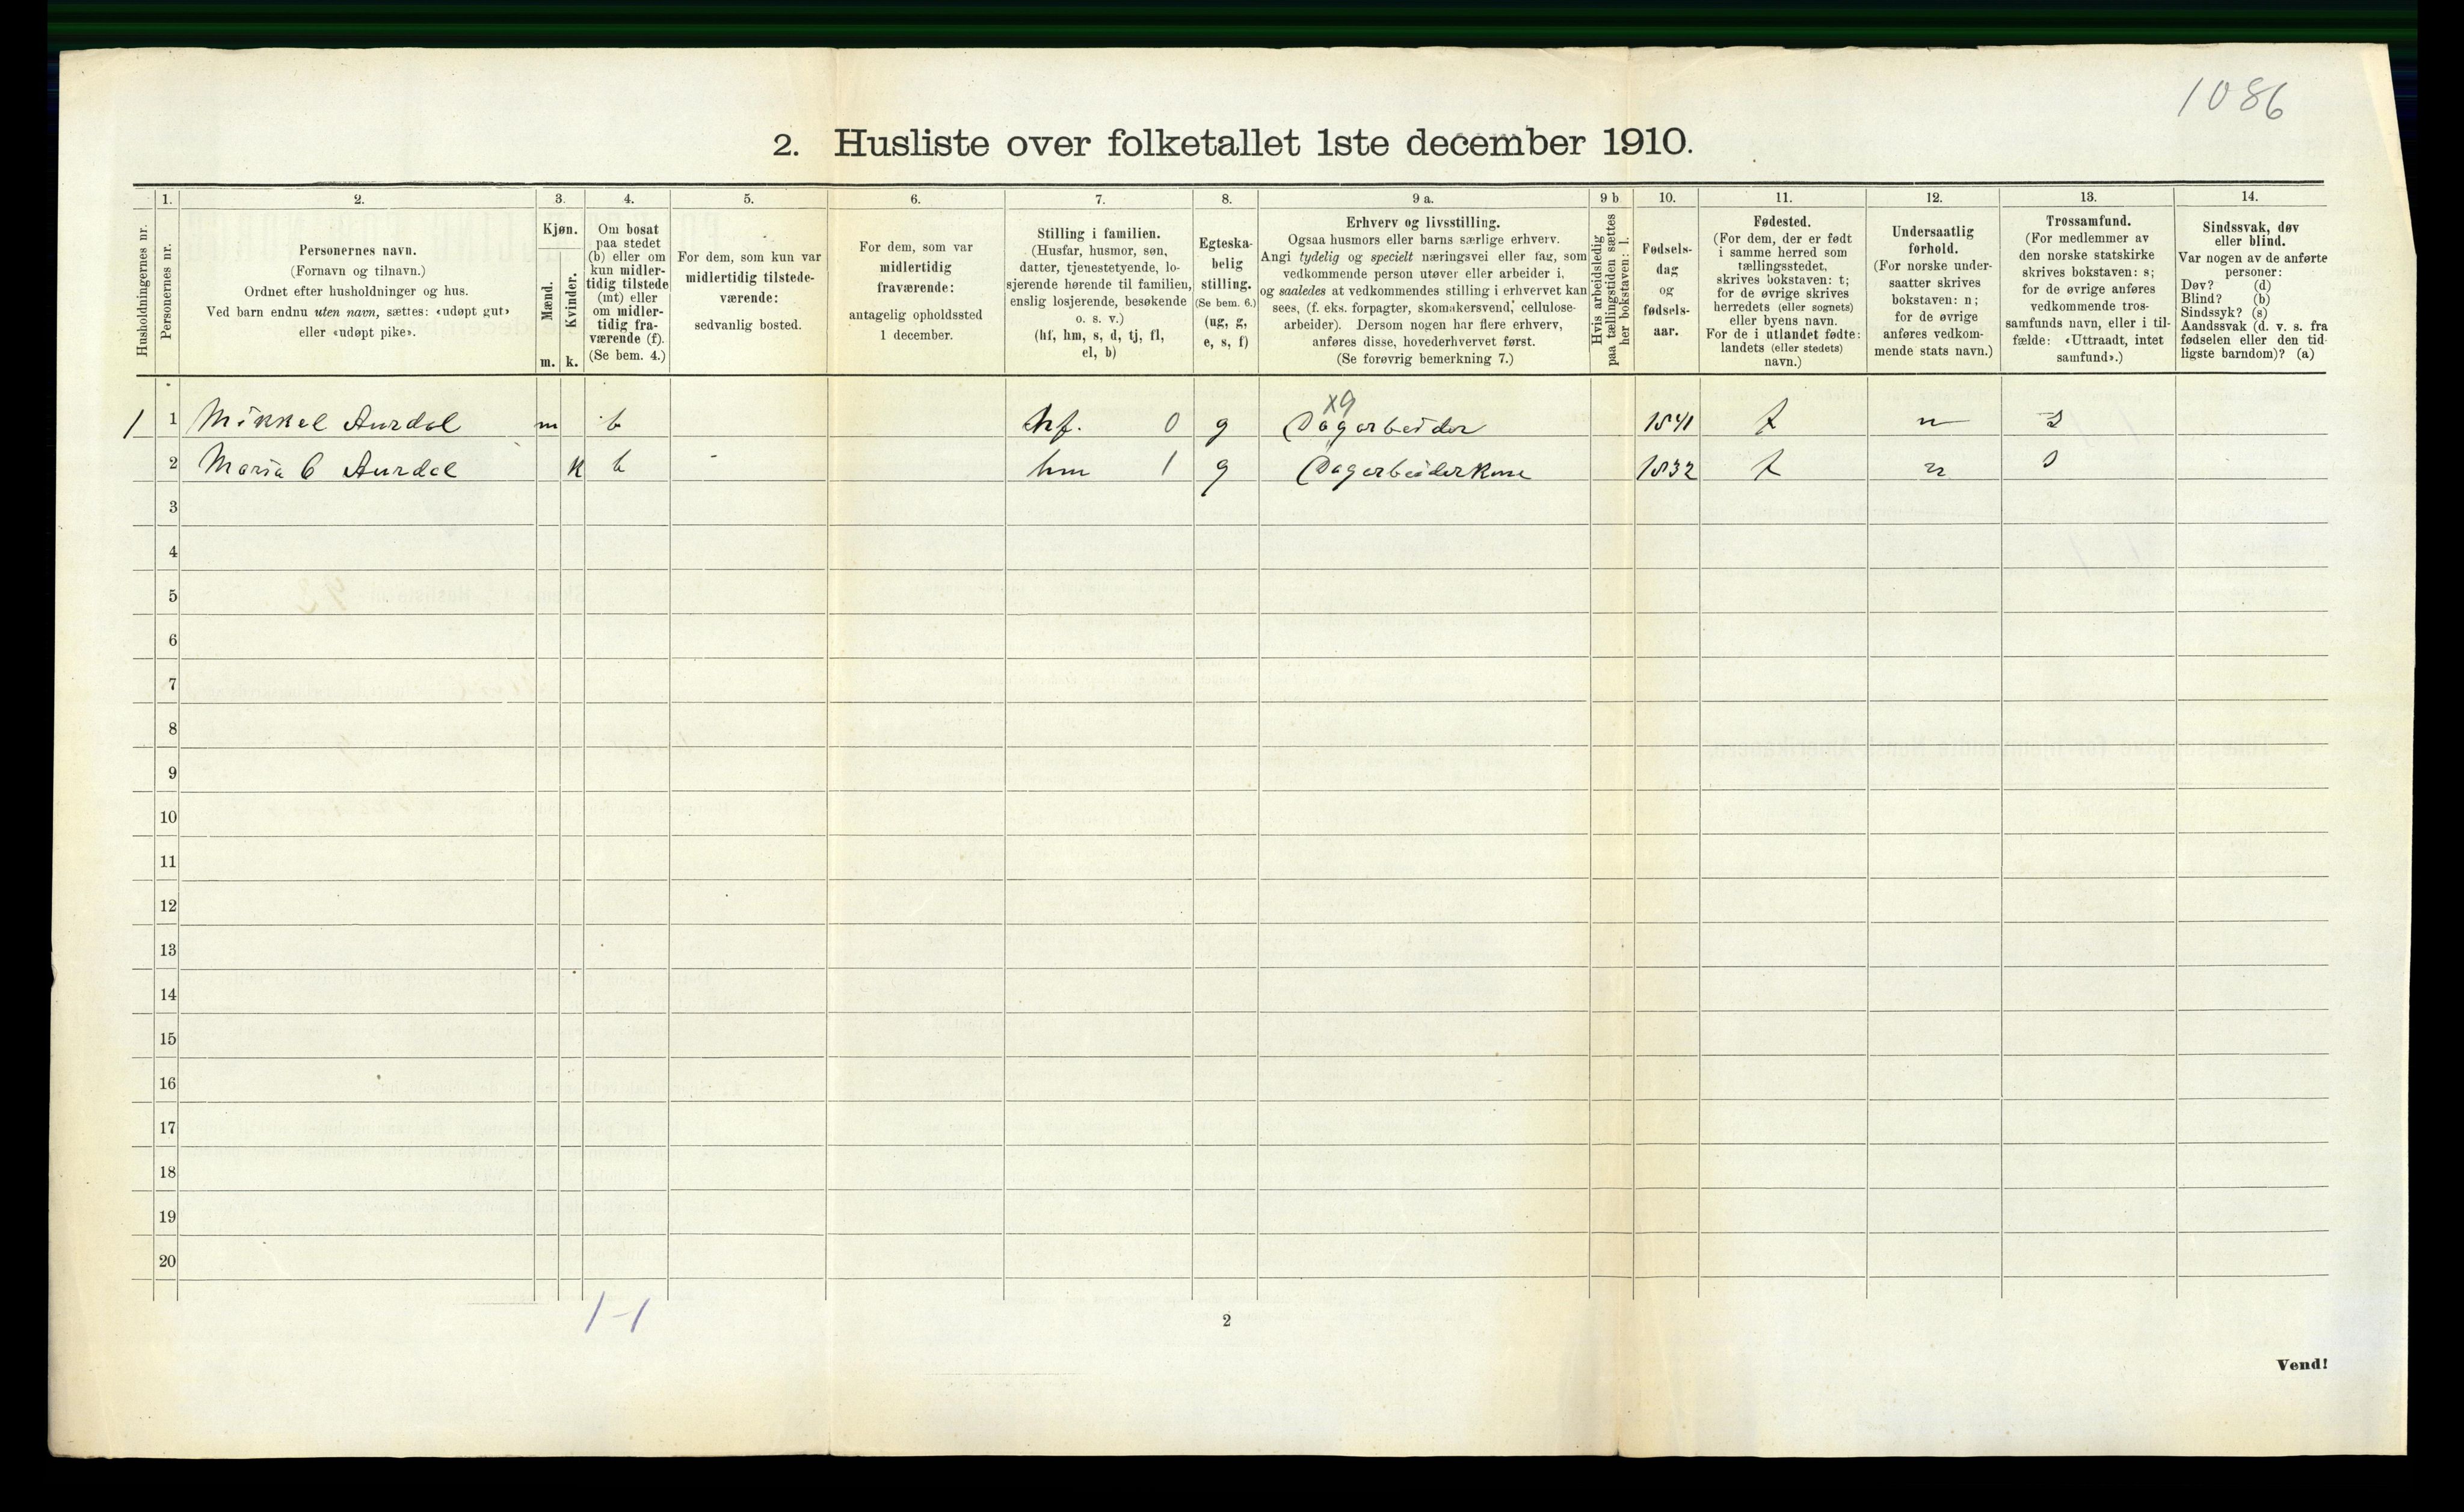 1086
2. Husliste over folketallet 1ste december 1910.
Husholdningernes nr.
1.
Personernes nr.
2.
Personernes navn.
(Fornavn og tilnavn.)
Ordnet efter husholdninger og hus.
Ved barn endnu uten navn, sættes: «udøpt gut»
eller «udøpt pike».
3.
Kjøn.
Mænd.
m.
Kvinder.
k.
4.
Om bosat
paa stedet
(b) eller om
kun midler-
tidig tilstede
(mt) eller
om midler-
tidig fra-
værende (f).
(Se bem. 4.)
5.
For dem, som kun var
midlertidig tilstede-
værende:
sedvanlig bosted.
6.
For dem, som var
midlertidig
fraværende:
antagelig opholdssted
1 december.
7.
Stilling i familien.
(Husfar, husmor, søn,
datter, tjenestetyende, lo-
sjerende hørende til familien,
enslig losjerende, besøkende
o. s. v.)
(hf, hm, s, d, tj, fl,
el, b)
8.
Egteska-
belig
stilling.
(Se bem. 6.)
(ug, g,
e, s, f)
9 a.
Erhverv og livsstilling.
Ogsaa husmors eller barns særlige erhverv.
Angi tydelig og specielt næringsvei eller fag, som
vedkommende person utøver eller arbeider i,
og saaledes at vedkommendes stilling i erhvervet kan
sees, (f. eks. forpagter, skomakersvend, cellulose-
arbeider). Dersom nogen har flere erhverv,
anføres disse, hovederhvervet først.
(Se forøvrig bemerkning 7.)
9 b
Hvis arbeidsledig
paa tællingstiden sættes
her bokstaven: l.
10.
Fødsels-
dag
og
fødsels-
aar.
11.
Fødested.
(For dem, der er født
i samme herred som
tællingsstedet,
skrives bokstaven: t;
for de øvrige skrives
herredets (eller sognets)
eller byens navn.
For de i utlandet fødte:
landets (eller stedets)
navn.)
12.
Undersaatlig
forhold.
(For norske under-
saatter skrives
bokstaven: n;
for de øvrige
anføres vedkom-
mende stats navn.)
13.
Trossamfund.
(For medlemmer av
den norske statskirke
skrives bokstaven: s;
for de øvrige anføres
vedkommende tros-
samfunds navn, eller i til-
fælde: «Uttraadt, intet
samfund».)
14.
Sindssvak, døv
eller blind.
Var nogen av de anførte
personer:
Døv? (d)
Blind? (b)
Sindssyk? (s)
Aandssvak (d. v. s. fra
fødselen eller den tid-
ligste barndom)? (a)
x9
1 1 Mikkel Aurdal m b hf. 0 g Dagarbeider 1841 t n s
2 Maria C Aurdal k b - hm 1 g Dagarbeiderkone 1832 t n s
3
4
5
6
7
8
9
10
11
12
13
14
15
16
17
18
19
20
1-1
2
Vend!